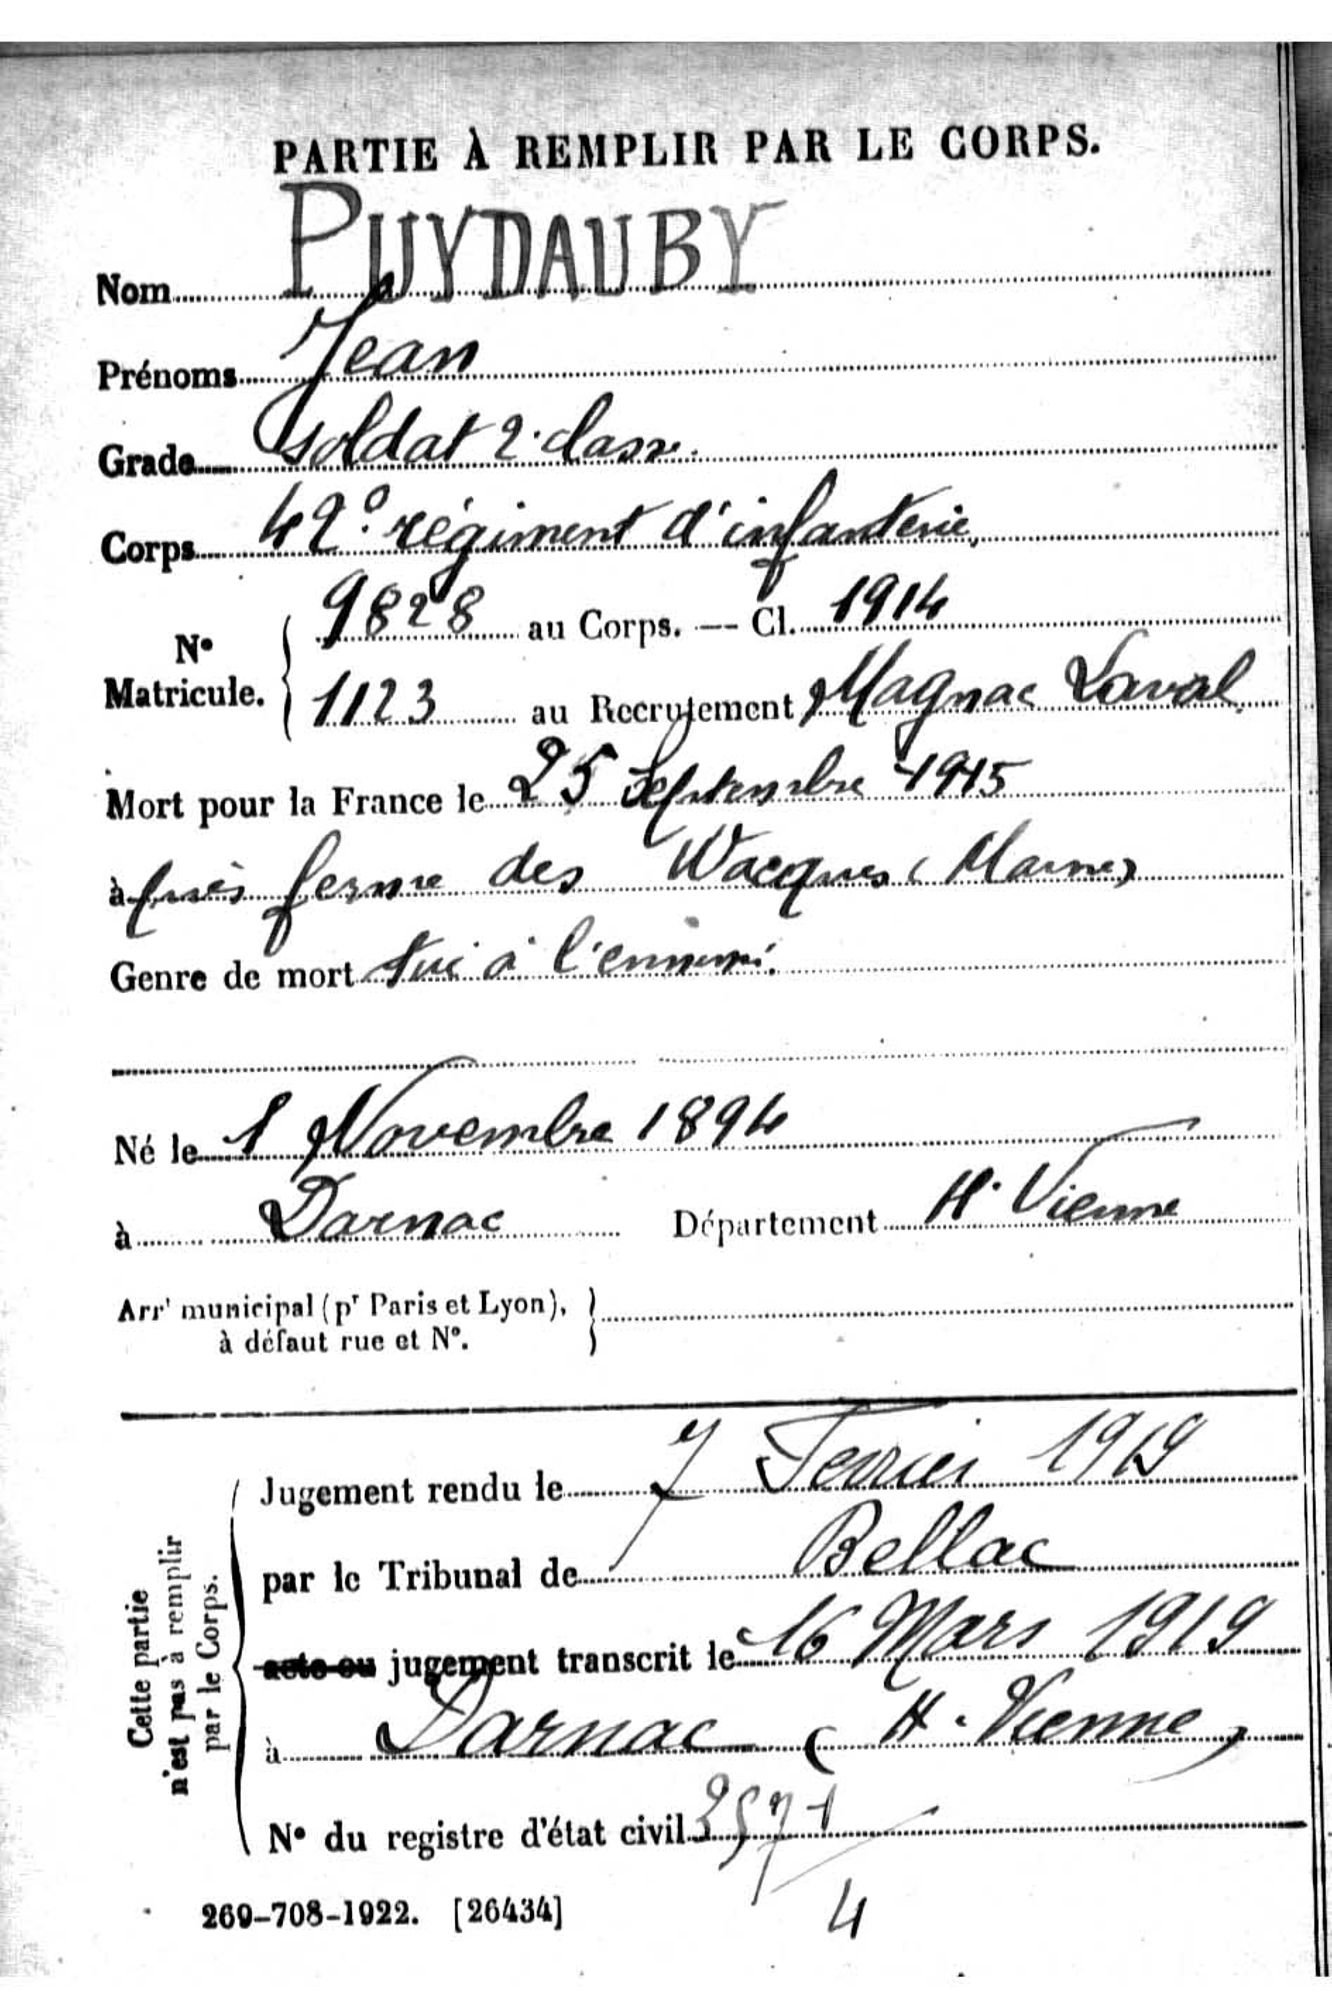 PARTIE À REMPLIR PAR LE CORPS.
Nom PUYDAUBY
Prénoms Jean
Grade Soldat 2e classe.
Corps 42e régiment d'infanterie.
No Matricule. { 9828 au Corps. — Cl. 1914
1123 au Recrutement Magnac Laval
Mort pour la France le 25 Septembre 1915
à près ferme des Wacques (Marne)
Genre de mort tué à l'ennemi.
Né le 1 Novembre 1894
à Darnac Département H. Vienne
Arrt municipal (pr Paris et Lyon), }
à défaut rue et No.
Cette partie
n'est pas à remplir
par le Corps.
Jugement rendu le 7 Fevrier 1919
par le Tribunal de Bellac
acte ou jugement transcrit le 16 Mars 1919
à Darnac (H. Vienne)
No du registre d'état civil
269-708-1922. [26434]
4